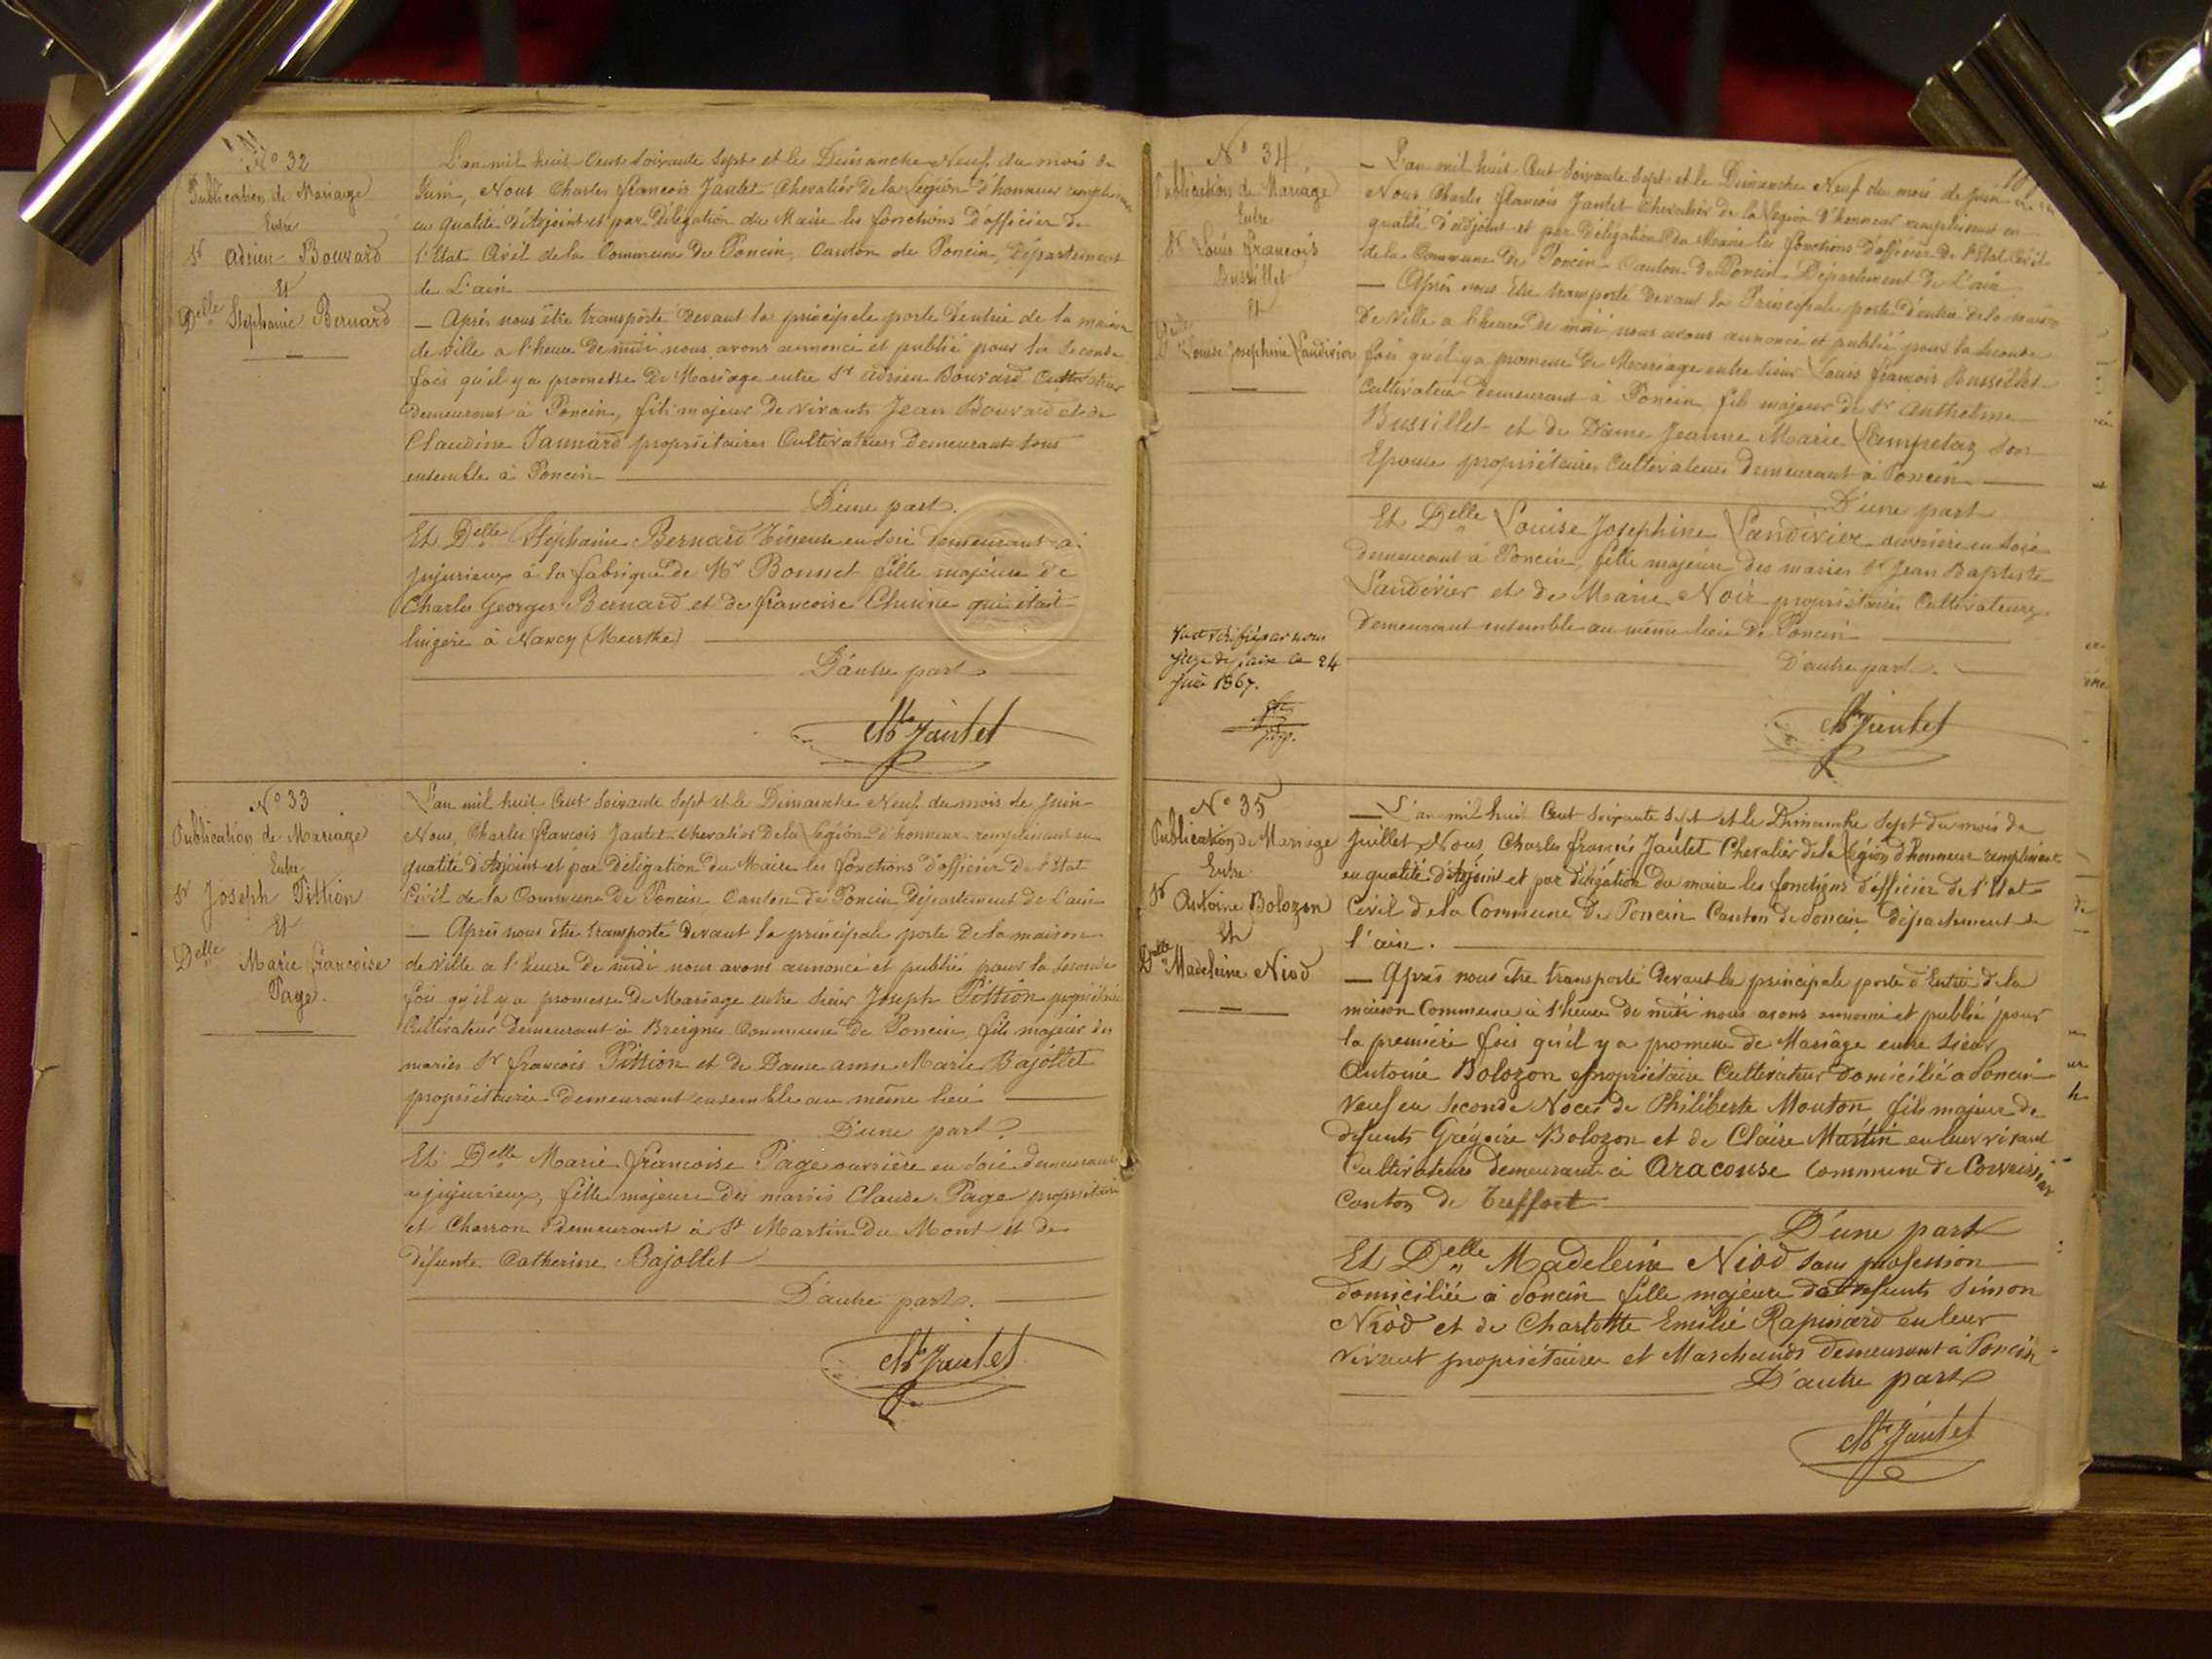 N° 32
Publication de Mariage
Entre
Sr Adrien Bouvard
Et
Delle Stéphanie Bernard
L'an mil huit Cent soixante Sept et le Dimanche Neuf du mois de
Juin, Nous Charles françois Jautet Chevalier de la Légion d'honneur remplissant
en qualité d'Adjoint et par Délégation du Maire les fonctions d'officier de
l'Etat Civil de la Commune de Poncin, Canton de Poncin, Département
de L'ain
— Après nous être transporté devant la principale porte d'entrée de la maison
de Ville a l'heure de midi nous avons annoncé et publié pour la seconde
fois qu'il y a promesse de Mariage entre Sr Adrien Bouvard Cultivateur
demeurant à Poncin, fils majeur de vivants Jean Bouvard et de
Claudine Jannard propriétaires Cultivateurs demeurant tous
ensemble à Poncin
D'une part.
Et Delle Stéphanie Bernard Tisseuse en soie demeurant à
Jujurieux à la fabrique de Mr Bonnet fille majeure de
Charles Georges Bernard et de françoise qui était
lingère à Nancy (Meurthe)
D'autre part
Jautet
N° 33
Publication de Mariage
Entre
Sr Joseph Pittion
Et
Delle Marie françoise
Page.
L'an mil huit Cent soixante Sept et le Dimanche Neuf du mois de Juin
Nous, Charles françois Jautet Chevalier de la Légion d'honneur remplissant en
qualité d'Adjoint et par Délégation du Maire les fonctions d'officier de l'Etat
Civil de la Commune de Poncin Canton de Poncin Département de L'ain
— Après nous être transporté devant la principale porte de la maison
de Ville a l'heure de midi nous avons annoncé et publié pour la seconde
fois qu'il y a promesse de Mariage entre sieur Joseph Pittion propriétaire
Cultivateur demeurant à Breignes Commune de Poncin fils majeur des
mariés Sr françois Pittion et de Dame anne Marie Bajollet
propriétaires demeurant ensemble au même lieu
D'une part
Et Delle Marie françoise Page ouvrière en soie demeurant
a jujurieux, fille majeure des mariés Claude Page propriétaire
et Charron demeurant à St Martin du Mont et de
défunte Catherine Bajollet
D'autre part.
Jautet
N° 34
Publication de Mariage
Entre
Sr Louis françois
Bussillet
Et
Delle Louise Josephine Landivier
Vu et vérifié par nous
Juge de paix le 24
Juin 1867.
— L'an mil huit Cent soixante Sept et le Dimanche Neuf du mois de juin
Nous Charles françois Jautet Chevalier de la Légion d'honneur remplissant en
qualité d'adjoint et par Délégation du Maire les fonctions d'officier de l'Etat Civil
de la Commune de Poncin Canton de Poncin Département de L'ain
— Après nous être transporté devant la Principale porte d'entrée de la maison
de Ville a l'heure de midi nous avons annoncé et publié pour la seconde
fois qu'il y a promesse de Mariage entre sieur Louis françois Bussillet
Cultivateur demeurant à Poncin fils majeur de Sr Anthelme
Bussillet et de Dame Jeanne Marie son
Epouse propriétaires Cultivateurs demeurant à Poncin
D'une part
Et Delle Louise Josephine Landivier ouvrière en soie
demeurant à Poncin, fille majeure des mariés Sr Jean Baptiste
Landivier et de Marie Noir propriétaires Cultivateurs
demeurant ensemble au même lieu de Poncin
D'autre part.
Jautet
N° 35
Publication de Mariage
Entre
Sr Antoine Bolozon
Et
Delle Madeleine Niod
— L'an mil huit Cent soixante Sept et le Dimanche Sept du mois de
Juillet Nous Charles françois Jautet Chevalier de la Légion d'honneur remplissant
en qualité d'Adjoint et par délégation du maire les fonctions d'officier de l'Etat
Civil de la Commune de Poncin Canton de Poncin Département de
l'ain.
— Après nous être transporté devant la principale porte d'Entrée de la
maison Commune à l'heure de midi nous avons annoncé et publié pour
la première fois qu'il y a promesse de Mariage entre sieur
Antoine Bolozon propriétaire Cultivateur domicilié a Poncin
Veuf en seconde Noces de Philiberte Mouton fils majeur de
defunts Grégoire Bolozon et de Claire Martin en leur vivant
Cultivateurs demeurant à Aracouse Commune de Corveissiat
Canton de Treffort
D'une part
Et Delle Madeleine Niod sans profession
domiciliée à Poncin fille majeure de defunts Simon
Niod et de Charlotte Emilie Rapinard en leur
vivant propriétaires et Marchands demeurant à Poncin
D'autre part
Jautet